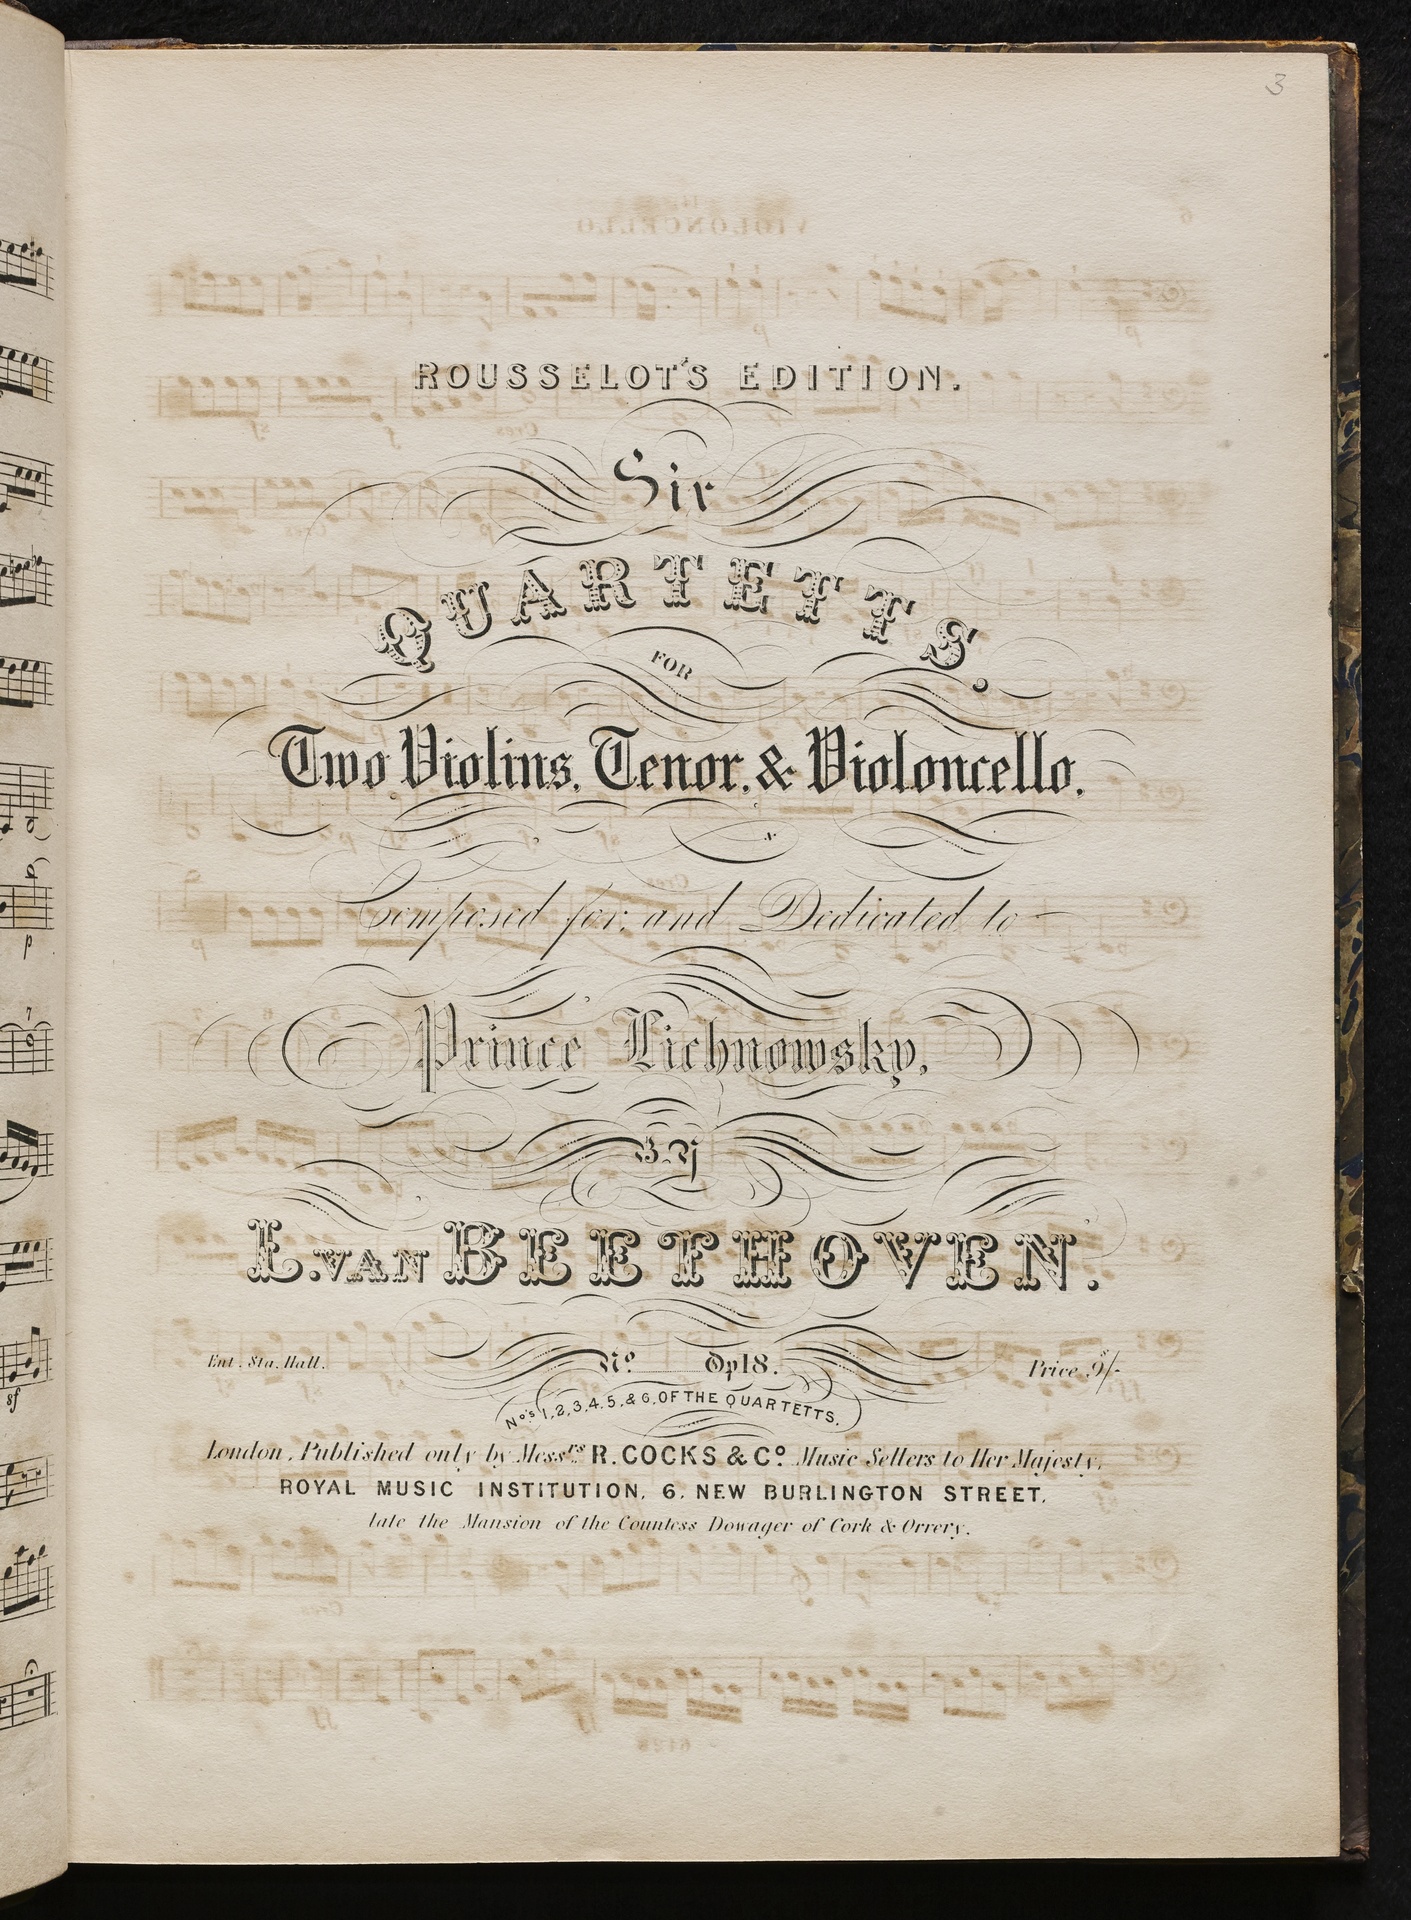 3
ROUSSELOT'S EDITION.
Six
QUARTETTS.
FOR
Two Violins, Tenor, & Violoncello.
Composed for, and Dedicated to
Prince Lichnowsky,
BY
L. VAN BEETHOVEN.
Ent. Sta. Hall.
No. Op 18.
Price 9s/-
Nos. 1, 2, 3, 4, 5, & 6, OF THE QUARTETTS.
London, Published only by Messrs. R. COCKS & Co. Music Sellers to Her Majesty,
ROYAL MUSIC INSTITUTION, 6, NEW BURLINGTON STREET,
late the Mansion of the Countess Dowager of Cork & Orrery.
VIOLONCELLO
6
p
sf